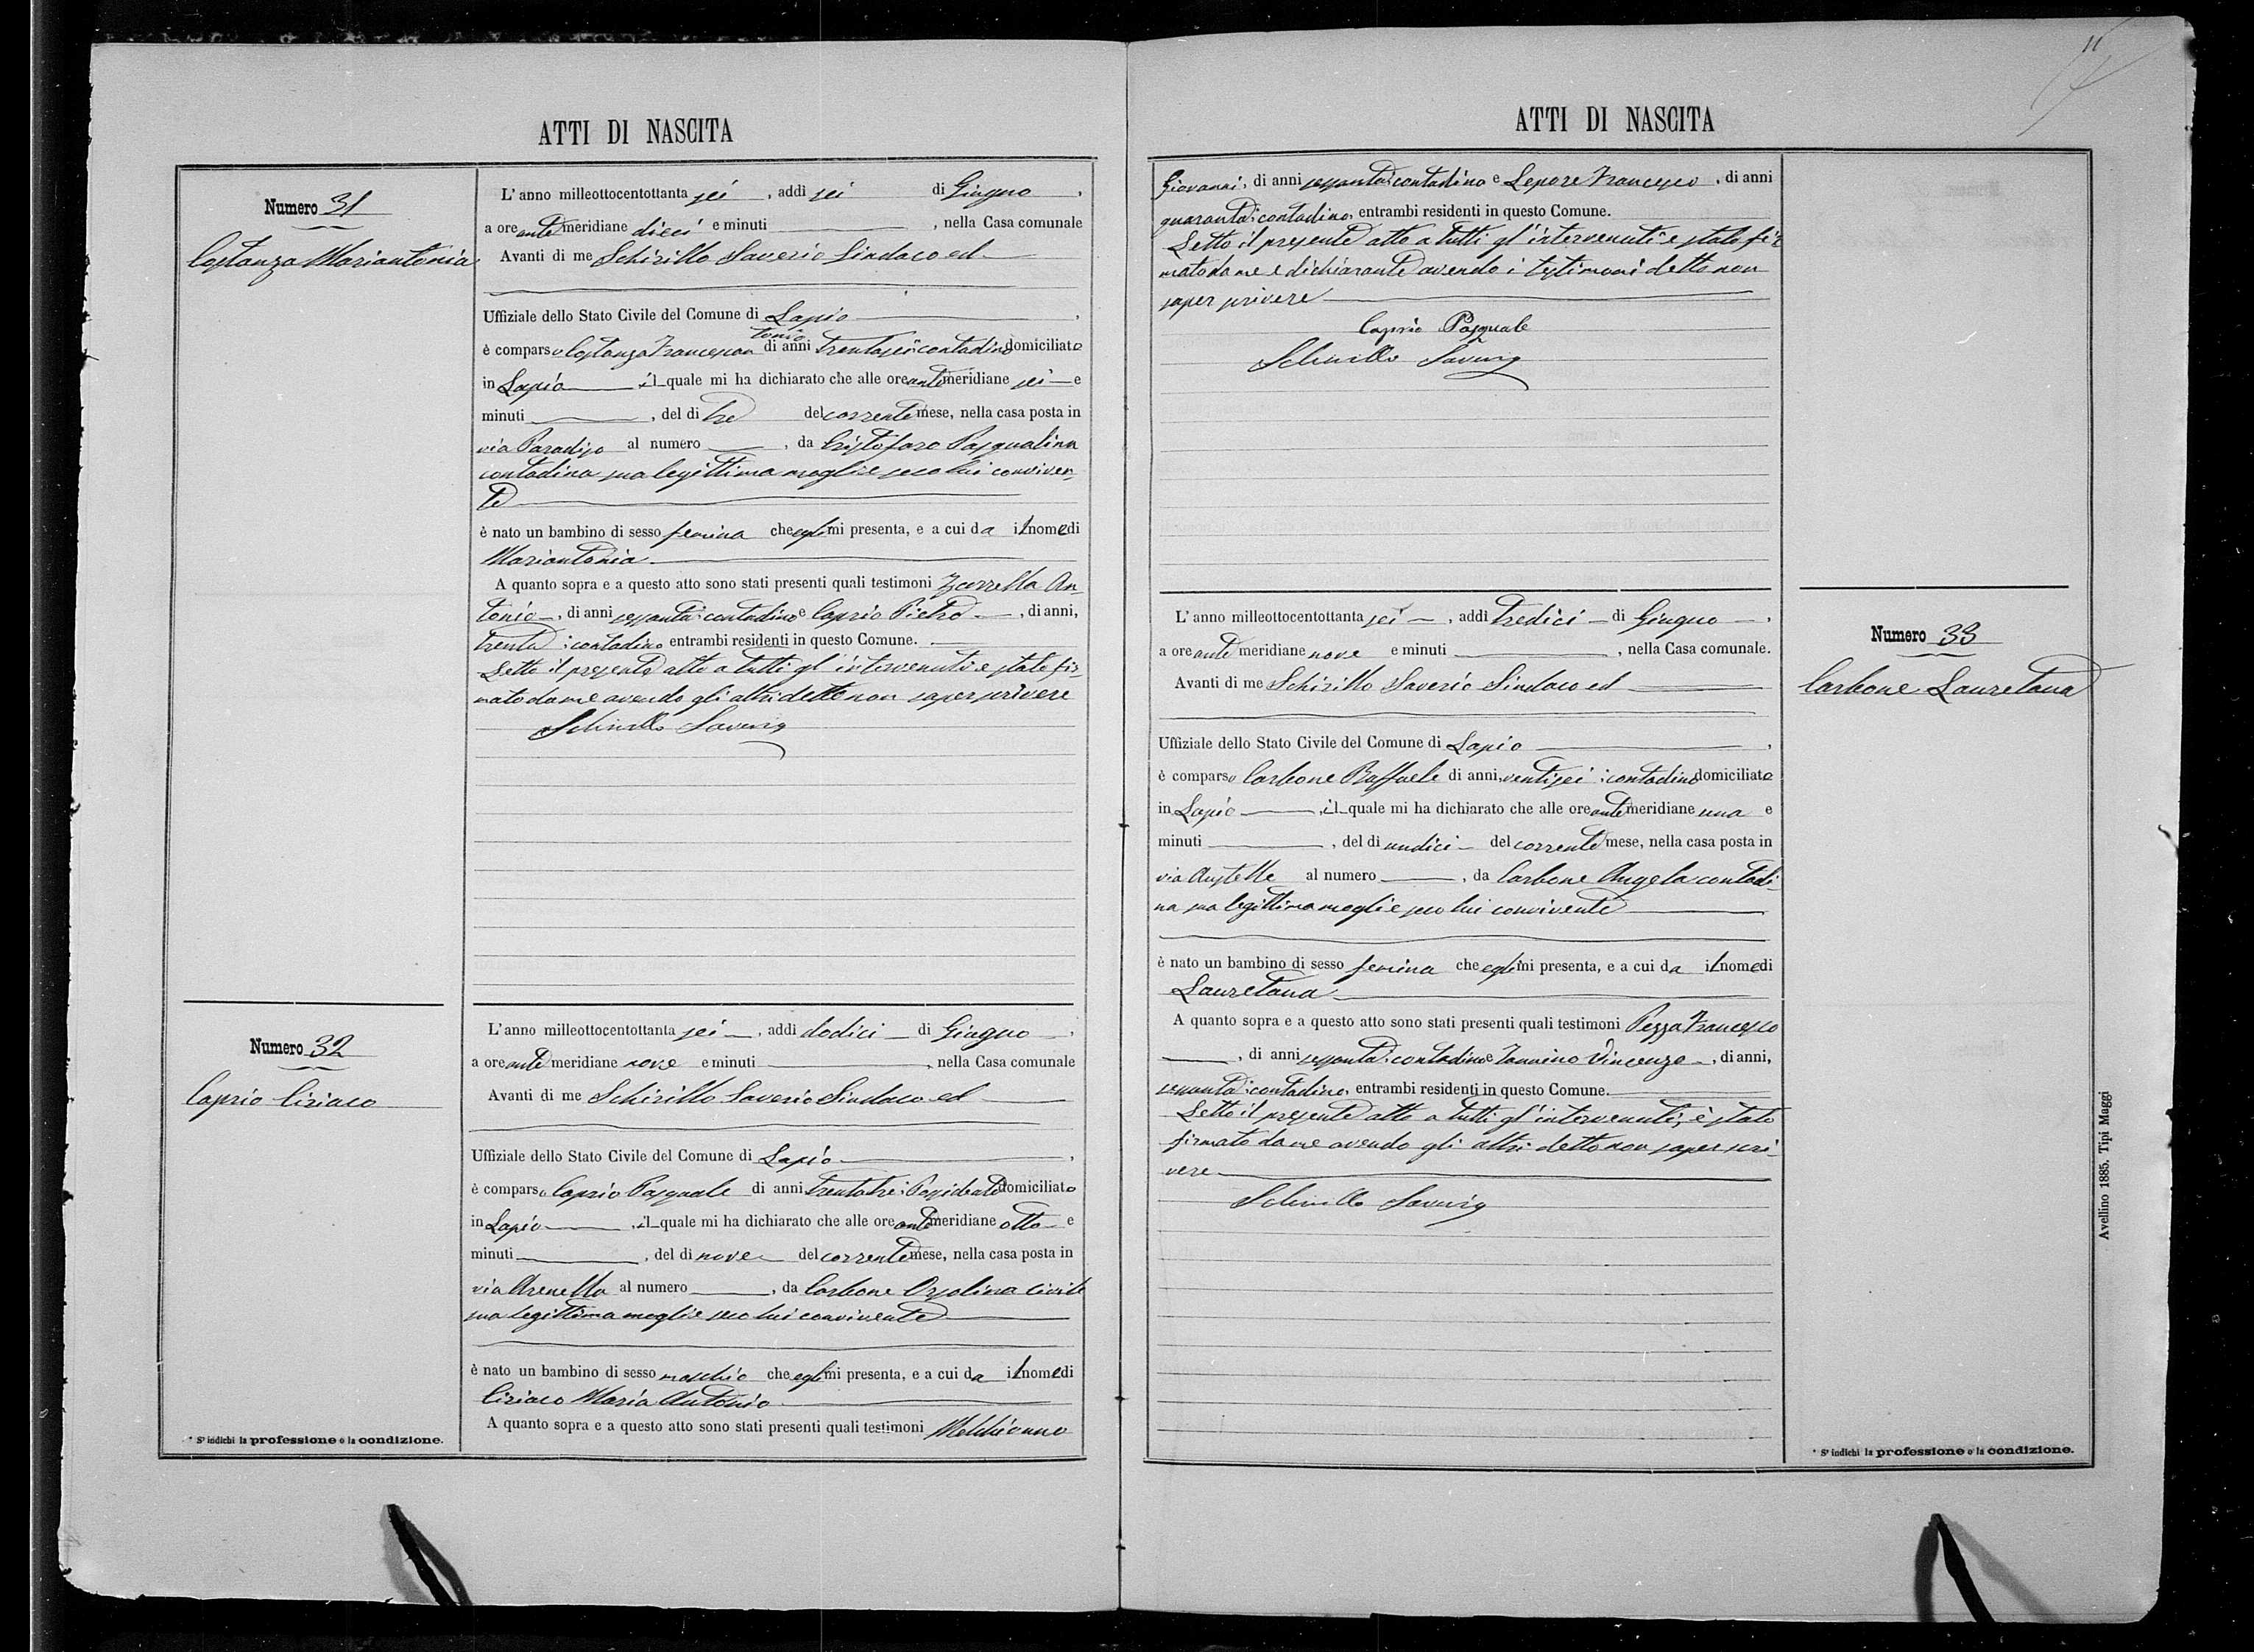 ATTI DI NASCITA
Numero 31
Costanza Mariantonia
L'anno milleottocentottanta sei, addì sei di Giugno,
a ore ante meridiane dieci e minuti , nella Casa comunale
Avanti di me Schirillo Saverio Sindaco ed
Uffiziale dello Stato Civile del Comune di Lapio,
tonio
è comparso Costanza Francescan di anni trentasei contadino domiciliato
in Lapio il quale mi ha dichiarato che alle ore antemeridiane sei e
minuti , del dì tre del corrente mese, nella casa posta in
via Paradiso al numero , da Cristofaro Pasqualina
contadina sua legittima moglie seco lui conviven-
te
è nato un bambino di sesso femina che egli mi presenta, e a cui da il nome di
Mariantonia
A quanto sopra e a questo atto sono stati presenti quali testimoni An-
tonio, di anni sessanta contadino e Caprio Pietro, di anni,
trenta contadino entrambi residenti in questo Comune.
Letto il presente atto a tutti gl'intervenuti e stato fir-
mato da me avendo gli altri detto non saper scrivere
Schirillo Saverio
Numero 32
Caprio Ciriaco
L'anno milleottocentottanta sei, addì dodici di Giugno,
a ore ante meridiane nove e minuti , nella Casa comunale
Avanti di me Schirillo Saverio Sindaco ed
Uffiziale dello Stato Civile del Comune di Lapio,
è comparso Caprio Pasquale di anni trentatre Possidente domiciliato
in Lapio, il quale mi ha dichiarato che alle ore antemeridiane otto e
minuti , del dì nove del corrente mese, nella casa posta in
via Arenella al numero , da Carbone Orsolina civile
sua legittima moglie seco lui convivente
è nato un bambino di sesso maschio che egli mi presenta, e a cui da il nome di
Ciriaco Maria Antonio
A quanto sopra e a questo atto sono stati presenti quali testimoni Melchionno
* S'indichi la professione o la condizione.
11
ATTI DI NASCITA
Giovanni, di anni sessanta contadino e Lepore Francesco, di anni
quaranta contadino, entrambi residenti in questo Comune.
Letto il presente atto a tutti gl'intervenuti e stato fir
mato da me e dichiarante avendo i testimoni detto non
saper scrivere
Caprio Pasquale
Schirillo Saverio
Numero 33
Carbone Lauretana
L'anno milleottocentottanta sei, addì tredici di Giugno,
a ore ante meridiane nove e minuti , nella Casa comunale.
Avanti di me Schirillo Saverio Sindaco ed
Uffiziale dello Stato Civile del Comune di Lapio,
è comparso Carbone Raffaele di anni, ventisei contadino domiciliato
in Lapio, il quale mi ha dichiarato che alle ore antemeridiane una e
minuti , del dì undici del corrente mese, nella casa posta in
via al numero , da Carbone Angela contadi-
na sua legittima moglie seco lui convivente
è nato un bambino di sesso femina che egli mi presenta, e a cui da il nome di
Lauretana
A quanto sopra e a questo atto sono stati presenti quali testimoni Pezza Francesco
, di anni sessanta contadino e Vincenzo, di anni,
sessanta contadino, entrambi residenti in questo Comune.
Letto il presente atto a tutti gl'intervenuti, è stato
firmato da me avendo gli altri detto non saper scri-
vere
Schirillo Saverio
* S'indichi la professione o la condizione.
Avellino 1885. Tipi Maggi